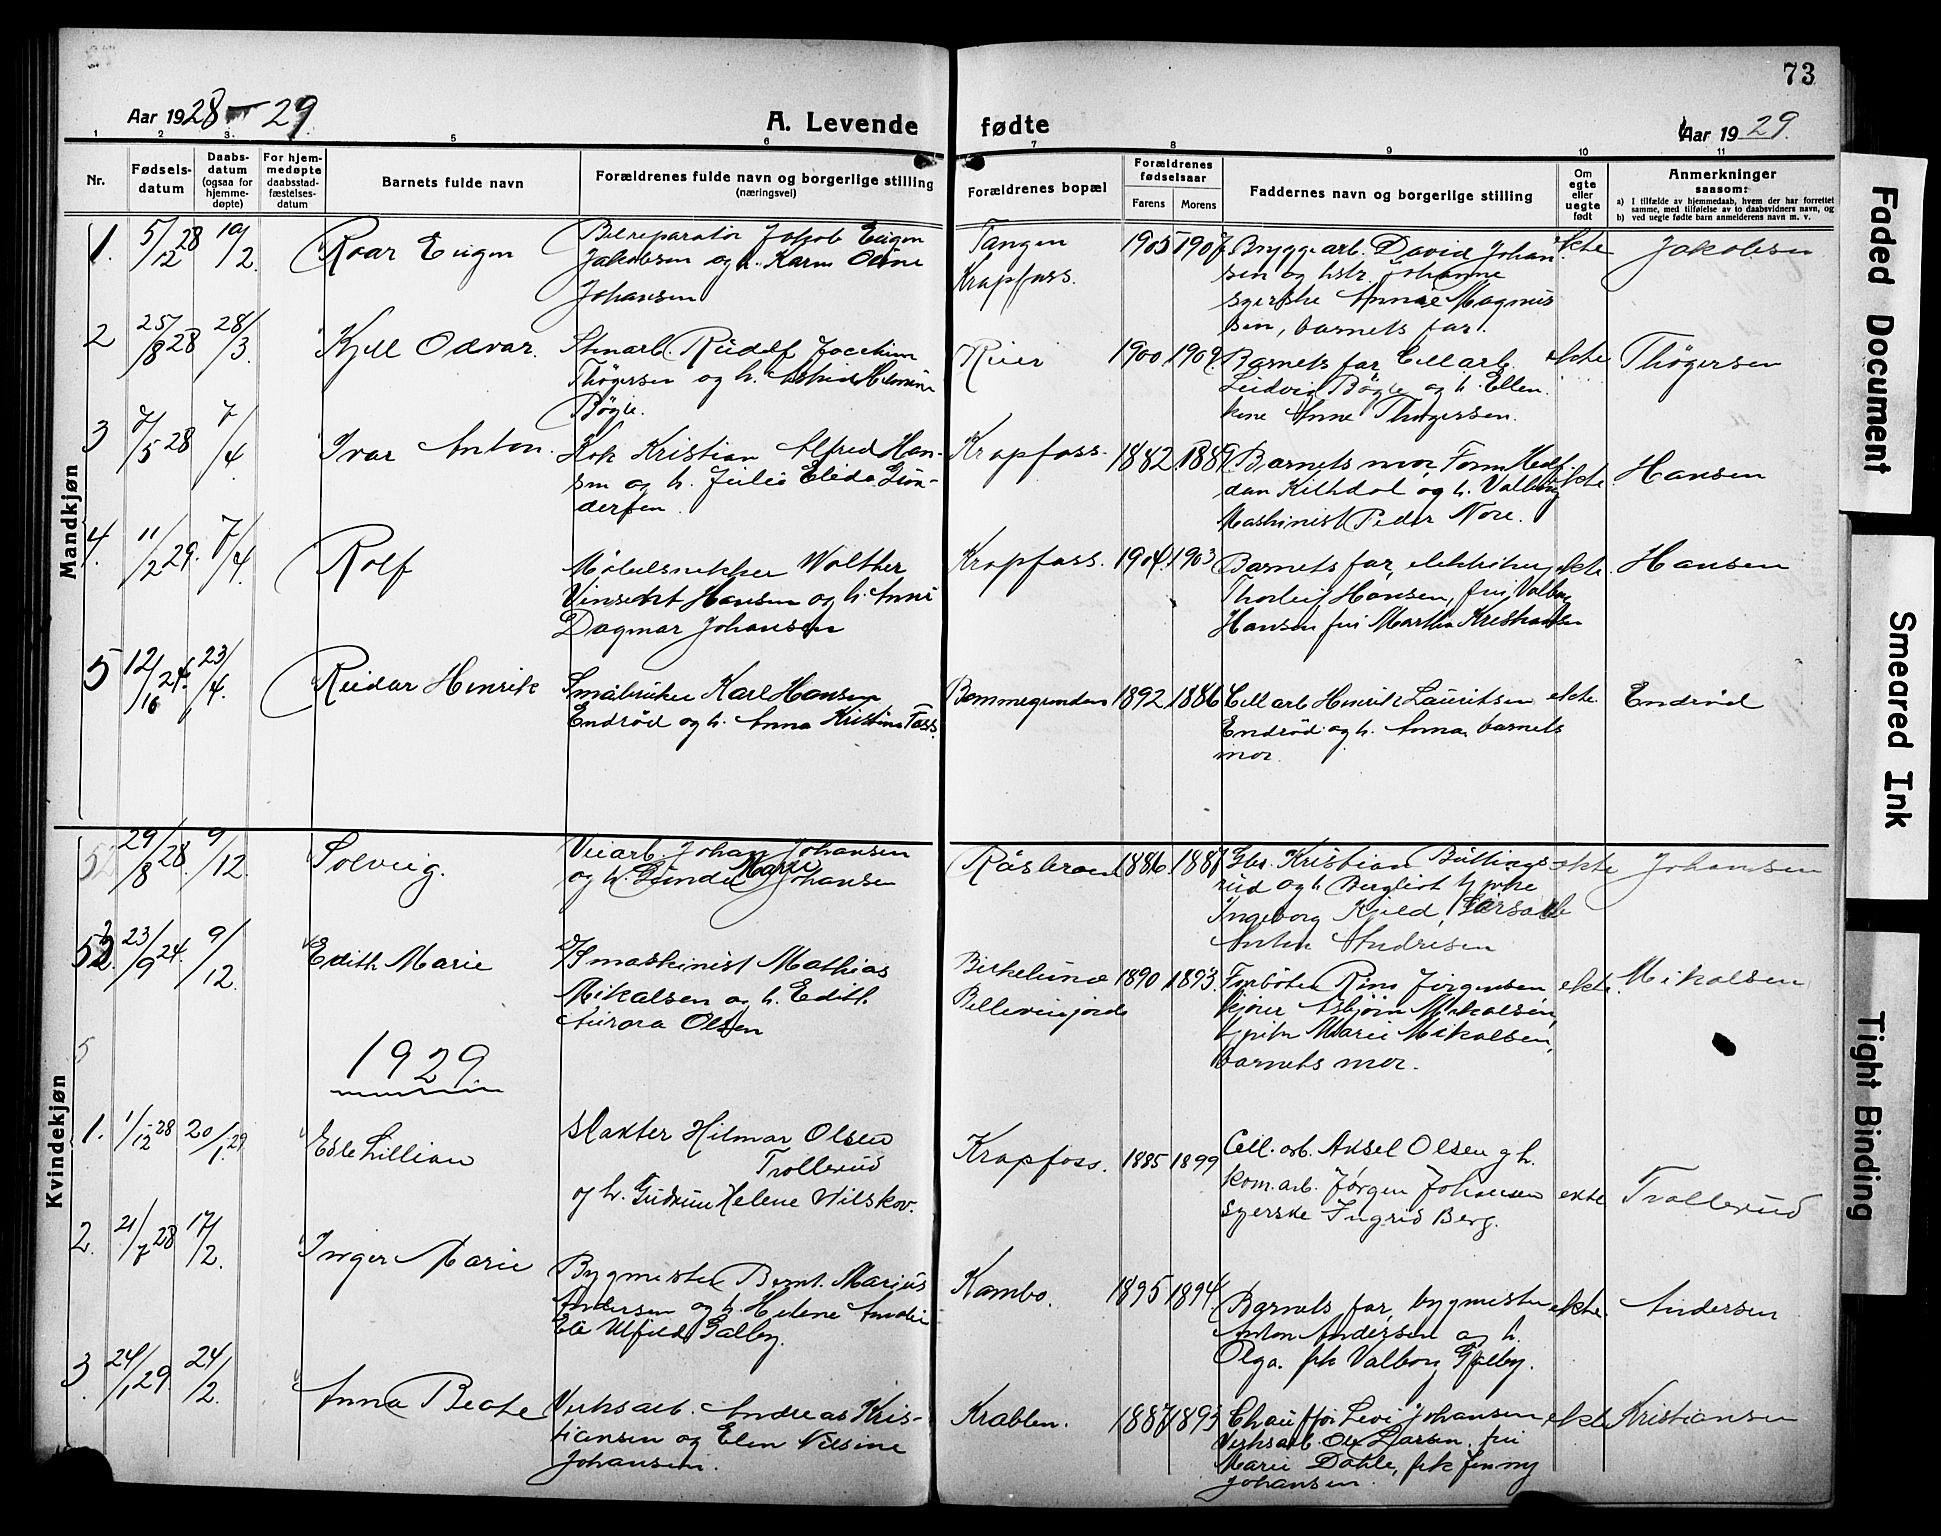 73
Aar 1928-29
A. Levende fødte
Aar 1929.
1 2 3. 5 6 7 8 9 10 11
Nr.
Fødsels-
datum
Daabs-
datum
(ogsaa for
hjemme-
døpte)
For hjem-
medøpte
daabsstad-
fæstelses-
datum
Barnets fulde navn
Forældrenes fulde navn og borgerlige stilling
(næringsvei)
Forældrenes bopæl
Forældrenes
fødselsaar
Farens Morens
Faddernes navn og borgerlige stilling
Om
egte
eller
uegte
født
Anmerkninger
saasom:
a) I tilfælde av hjemmedaab, hvem der har forrettet
samme, med tilføielse av to daabsvidners navn, og
b) ved uegte fødte barn anmelderens navn m. v.
Mandkjøn
1. 5/12 28 10/2. Roar Eugen
Bilreparatør Jakob Eugen
Jakobsen og h. Karen
Johansen
Tangen
Krapfoss.
1905 1907
Bryggearb. David Johan
sen og hstr. Johanne
syerske Magnus
sen, barnets far.
ekte Jakobsen
2 25/8 28 28/3. Kjell Odvar.
Stenarb. Rudolf Joachim
Thøgersen og h. Astrid
Bøgle.
Rier
1900 1909.
Barnets far, Cell arb.
Ludvig Bøgle og h. Ellen
Anne Thøgersen.
ekte Thøgersen
3 7/5 28 7/4 Ivar Anton.
Kok Kristian Alfred Han-
sen og h. Julie Elida Gun-
dersen.
Krapfoss.
1882 1889
Barnets mor, Form
dan Kilhdal og h. Valborg
Maskinist Peder Nore.
ekte. Hansen
4. 11/2 29. 7/4. Rolf
Møbelsnekker Walther
Vinsent Hansen og h. Anni
Dagmar Johansen
Krapfoss.
1904. 1903
Barnets far,
Thorleif Hansen, fru Valborg
Hansen fru Martha Kristiansen
ekte. Hansen
5 12/10 24. 23/4. Reidar Henrik
Småbruker Karl Hansen
Endrød og h. Anna Kristine Foss.
Bommegrunden
1892. 1886
Cell arb Henrik Lauritsen
Endrød og h. Anna, barnets
mor.
ekte. Endrød
Kvindekjøn
29/8 28. 9/12. Solveig.
Veiarb. Johan Johansen
og h. Gunda Marie Johansen
Råsbråen
1886. 1887
Gbr. Kristian Bullings-
rud og h. Bergliot
Ingeborg Kjeld,
Anton Andresen
ekte Johansen
52. 23/9 24. 9/12. Edith Marie
maskinist Mathias
Mikalsen og h. Edith
Aurora Olsen
Birkelund
1890 1893.
Fyrbøter Jørgensen,
Asbjørn Mikalsen,
Marie Mikalsen,
barnets mor.
ekte. Mikalsen
5
1929
1. 1/12 -28 20/1. 29 Else Lillian
Slakter Hilmar Olsen
Trollerud
og h. Gudrun Helene Nilskov.
Krapfoss.
1885 1899
Cell. arb. Aksel Olsen og h.
kom.arb. Jørgen Johansen
syerske Ingrid Berg.
ekte Trollerud
2. 21/7 28 17/2. Inger Marie
Bygmester Bernt Marius
Andersen og h. Helene Amalie
Galby.
Kambo.
1895 1894.
Barnets far, bygmester
Anton Andersen og h.
Olga. frk Valborg Galby.
ekte. Andersen
3. 24/1 29. 24/2. Anna Beate
Verksarb. Andreas Kris-
tiansen og Elen Nilsine
Johansen.
Krabben.
1887 1893
Chauffør Levi Johansen
Verksarb. Ole Larsen, fru
Marie Dahle, frk Jenny
Johansen.
ekte Kristiansen
Faded Document
Smeared Ink
Tight Binding